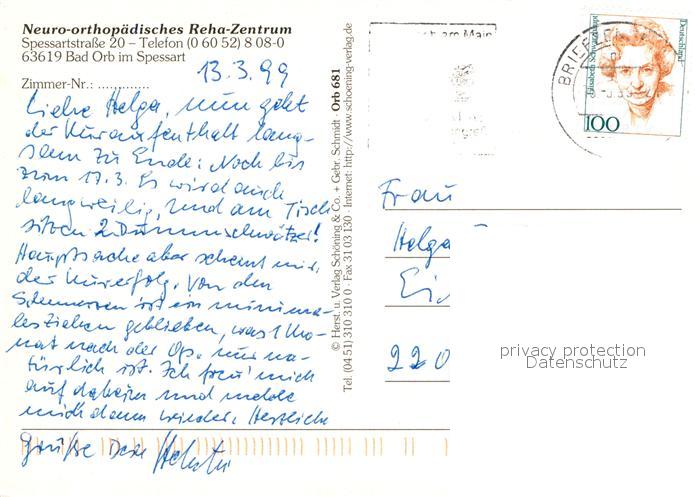 Neuro-orthopädisches Reha-Zentrum
Spessartstraße 20 – Telefon (0 60 52) 8 08-0
63619 Bad Orb im Spessart
Zimmer-Nr.: .............
13.3.99
Liebe Helga, nun geht
der Kuraufenthalt lang-
sam zu Ende: Noch bis
zum 17.3. Es wird auch
langweilig, und am Tisch
sitzen 2 Dummschwätzer!
Hauptsache aber scheint mir,
der Kurerfolg. Von den
Schmerzen ist ein minima-
les Ziehen geblieben, was 1 Mo-
nat nach der Op. nur na-
türlich ist. Ich freu' mich
auf daheim und melde
mich dann wieder. Herzliche
Grüße Dein
© Herst. u. Verlag Schöning & Co. + Gebr. Schmidt · Orb 681
Tel. (04 51) 310 310 0 · Fax 31 03 130 · Internet: http://www.schoening-verlag.de
Main
BRIEFZE
Elisabeth Schwarzhaupt
Deutschland
100
Frau
Helga
220
privacy protection
Datenschutz